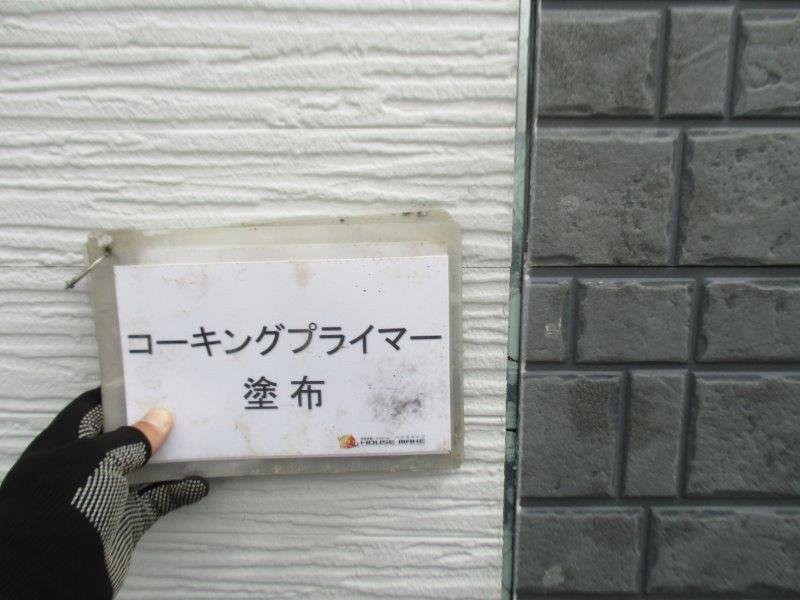 コーキングプライマー
塗布
HOUSE MAKE